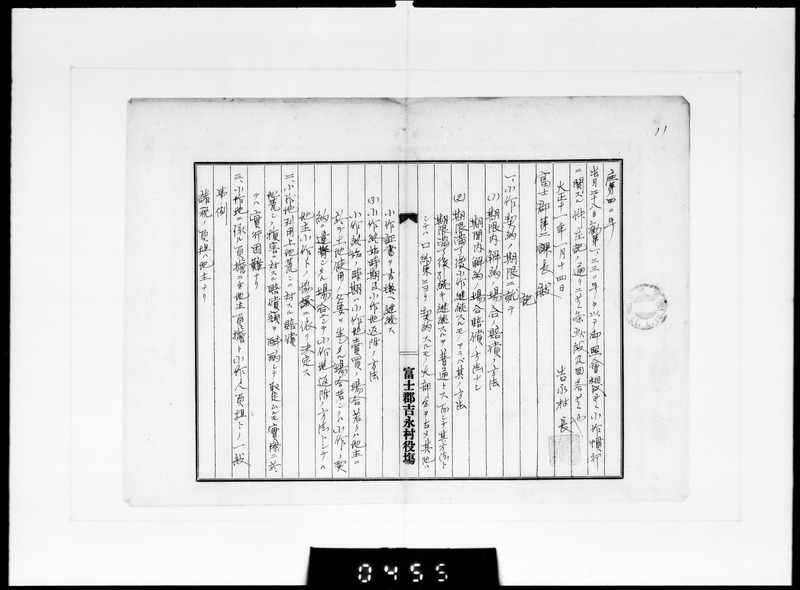 11
庶第四〇号
客月二十八日勧第一三三〇号ヲ以テ御照會相成候小作慣行
ニ関スル件左記ノ通リニ有之候條此段及回答候也
大正十一年一月十四日
吉永村長
富士郡第一課長殿
記
一、小作契約ノ期限ニ就テ
(1)期限内解約ノ場合賠償ノ方法
期間内解約ノ場合賠償ノ方法ナシ
(2)期限満了後小作継続スルモノアラバ其ノ方法
期限満了後引続キ継続スルヲ普通トス而シテ其方法ト
シテハ口約束ニヨリ契約スルモノ大部分ヲ占メ其他ハ
小作証書ヲ書換ヘ継続ス
(3)小作終始時期及小作地返還ノ方法
小作終始ノ時期ハ小作地賣買ノ場合若クハ地主ニ
於テ土地使用ノ必要ヲ生ジタル場合若シクハ小作ノ契
約ニ違背シタル場合ニシテ小作地返還ノ方法トシテハ
地主小作人ノ協議ニ依リ決定ス
二、小作地利用上地荒シニ対スル賠償
地荒シノ損害ニ対スル賠償額ヲ酌量シテ取定ムルモ實際ニ於
テハ實行困難ナリ
三、小作地ニ係ル負擔ニシテ地主負擔ト小作人負担トノ一般
事例
諸税ノ負担ハ地主ナリ
富士郡吉永村役場
0455